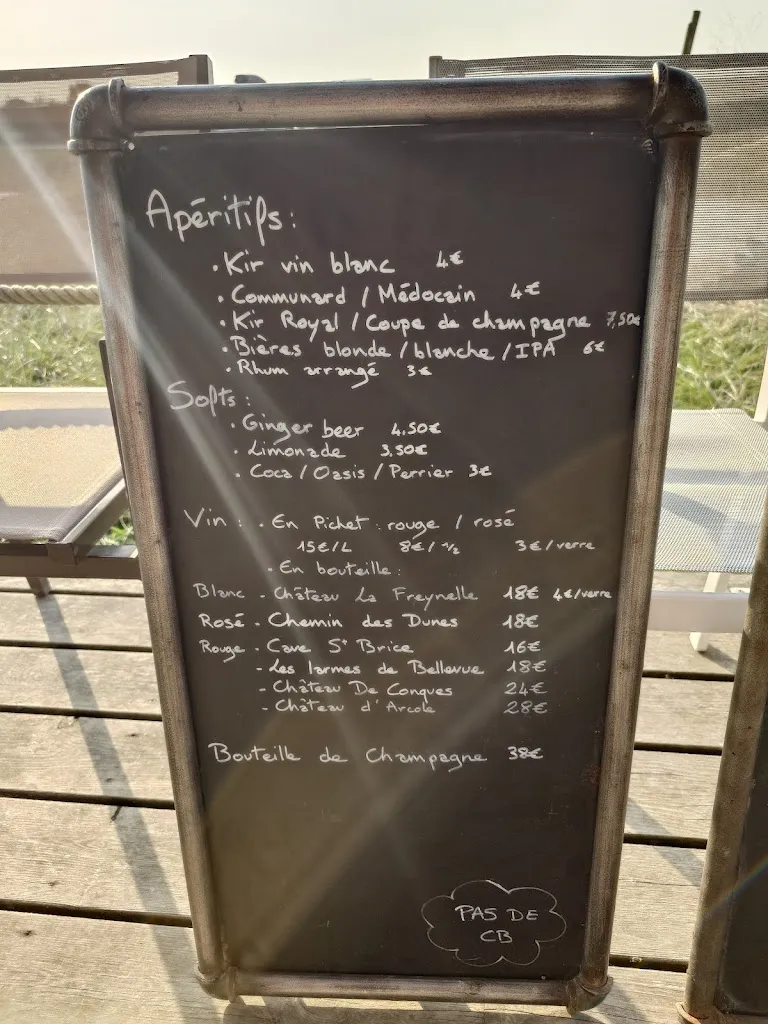 Apéritifs :
• Kir vin blanc 4€
• Communard / Médocain 4€
• Kir Royal / Coupe de champagne 7,50€
• Bières blonde / blanche / IPA 6€
• Rhum arrangé 3€
Softs :
• Ginger beer 4.50€
• Limonade 3,50€
• Coca / Oasis / Perrier 3€
Vin : • En Pichet : rouge / rosé
15€/L 8€/ 1/2 3€/verre
• En bouteille :
Blanc - Château La Freynelle 18€ 4€/verre
Rosé - Chemin des Dunes 18€
Rouge - Cave St Brice 16€
- Les larmes de Bellevue 18€
- Château De Conques 24€
- Château d'Arcole 28€
Bouteille de Champagne 38€
PAS DE
CB